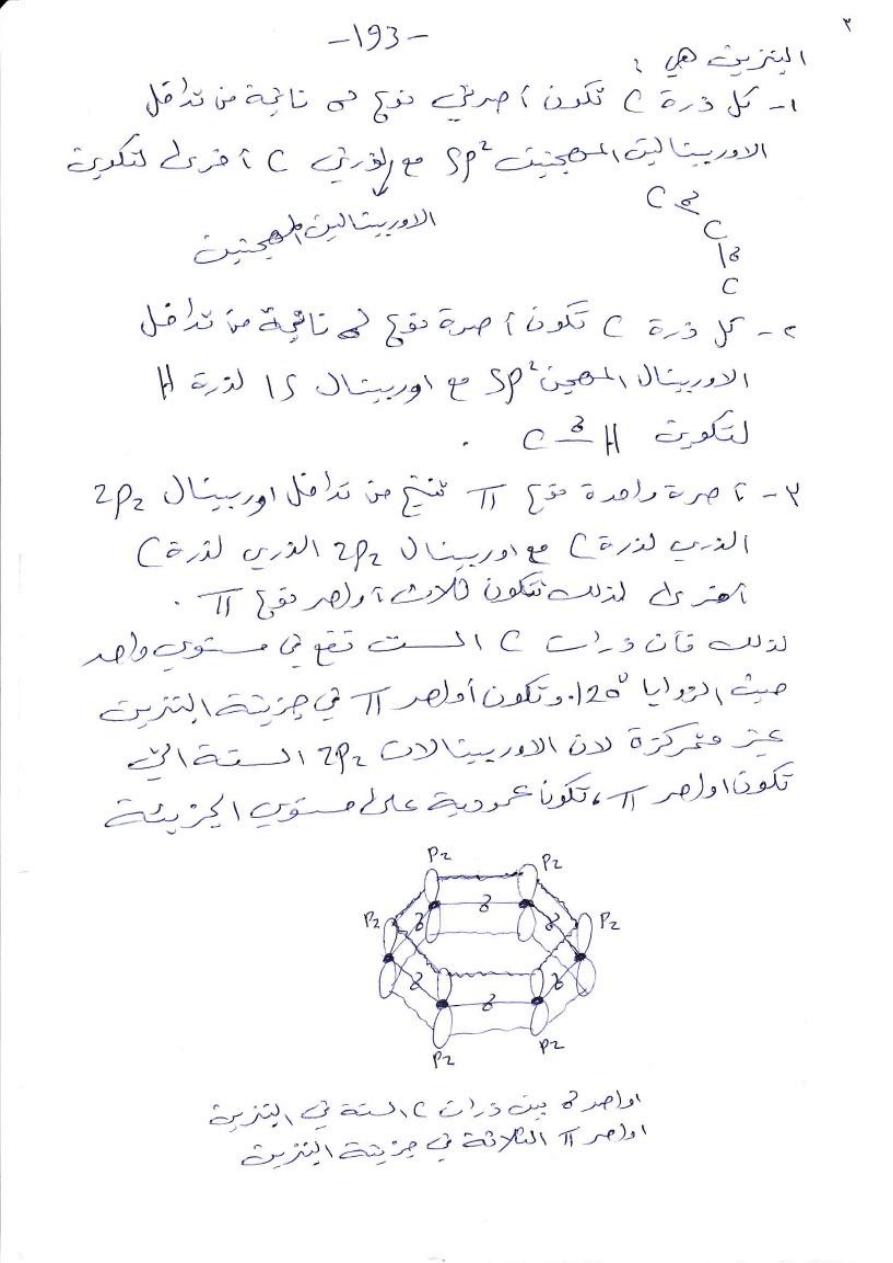 ٣
-193-
البنزين هي :
١- كل ذرة C تكون أصرتي نوع σ ناتجة من تداخل
الاوربيتالين المهجنين sp² مع لذرتي C أخرى لتكوين
الاوربيتالين المهجنين
C σ
C
σ
C
٢- كل ذرة C تكون أصرة نوع σ ناتجة من تداخل
الاوربيتال المهجن sp² مع اوربيتال 1S لذرة H
لتكوين C σ H .
٣- أصرة واحدة نوع π تنتج من تداخل اوربيتال 2Pz
الذري لذرة C مع اوربيتال 2Pz الذري لذرة C
أخرى لذلك تتكون ثلاث أواصر نوع π .
لذلك فأن ذرات C الست تقع في مستوي واحد
حيث الزوايا 120° وتكون أواصر π في جزيئة البنزين
غير متمركزة لان الاوربيتالات 2Pz الستة التي
تكون اواصر π، تكون عمودية على مستوي الجزيئة
Pz Pz
Pz σ σ σ Pz
σ σ σ
Pz Pz
اواصر σ بين ذرات C الستة في البنزين
اواصر π الثلاثة في جزيئة البنزين